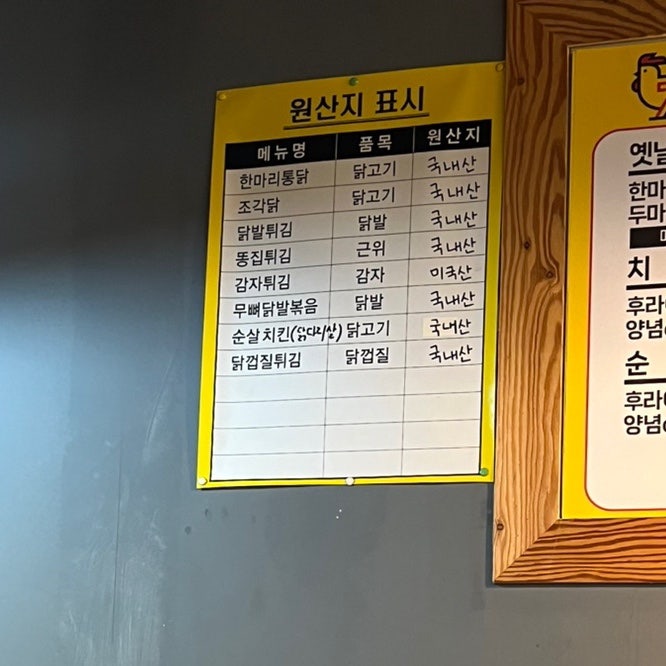 원산지 표시
메뉴명 품목 원산지
한마리통닭 닭고기 국내산
조각닭 닭고기 국내산
닭발튀김 닭발 국내산
똥집튀김 근위 국내산
감자튀김 감자 미국산
무뼈닭발볶음 닭발 국내산
순살치킨(닭다리살) 닭고기 국내산
닭껍질튀김 닭껍질 국내산
옛날
한마
두마
치
후라
양념
순
후라
양념